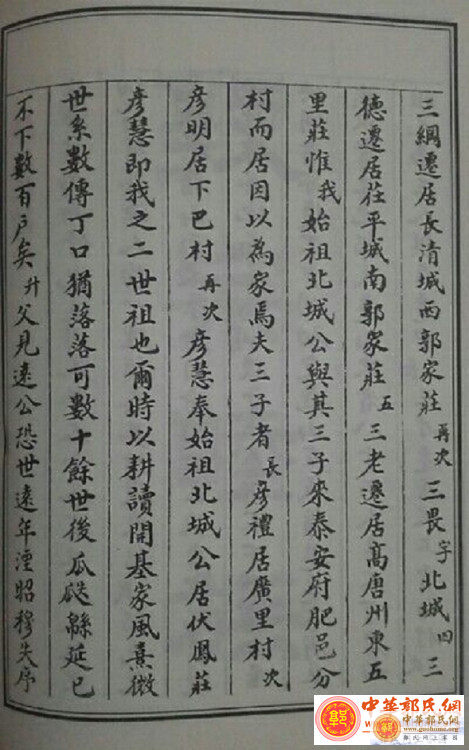 三綱遷居長清城西郭家莊再次三畏字北城四三
德遷居茌平城南郭家莊五三老遷居高唐州東五
里莊惟我始祖北城公與其三子來泰安府肥邑分
村而居因以為家焉夫三子者長彥禮居廣里村次
彥明居下巴村再次彥慧奉始祖北城公居伏鳳莊
彥慧即我之二世祖也爾時以耕讀開基家風熹微
世系數傳丁口猶落落可數十餘世後瓜瓞緜延已
不下數百戶矣升父見遠公恐世遠年湮昭穆失序
中華郭氏網
www.guohome.org
郭氏網上家園